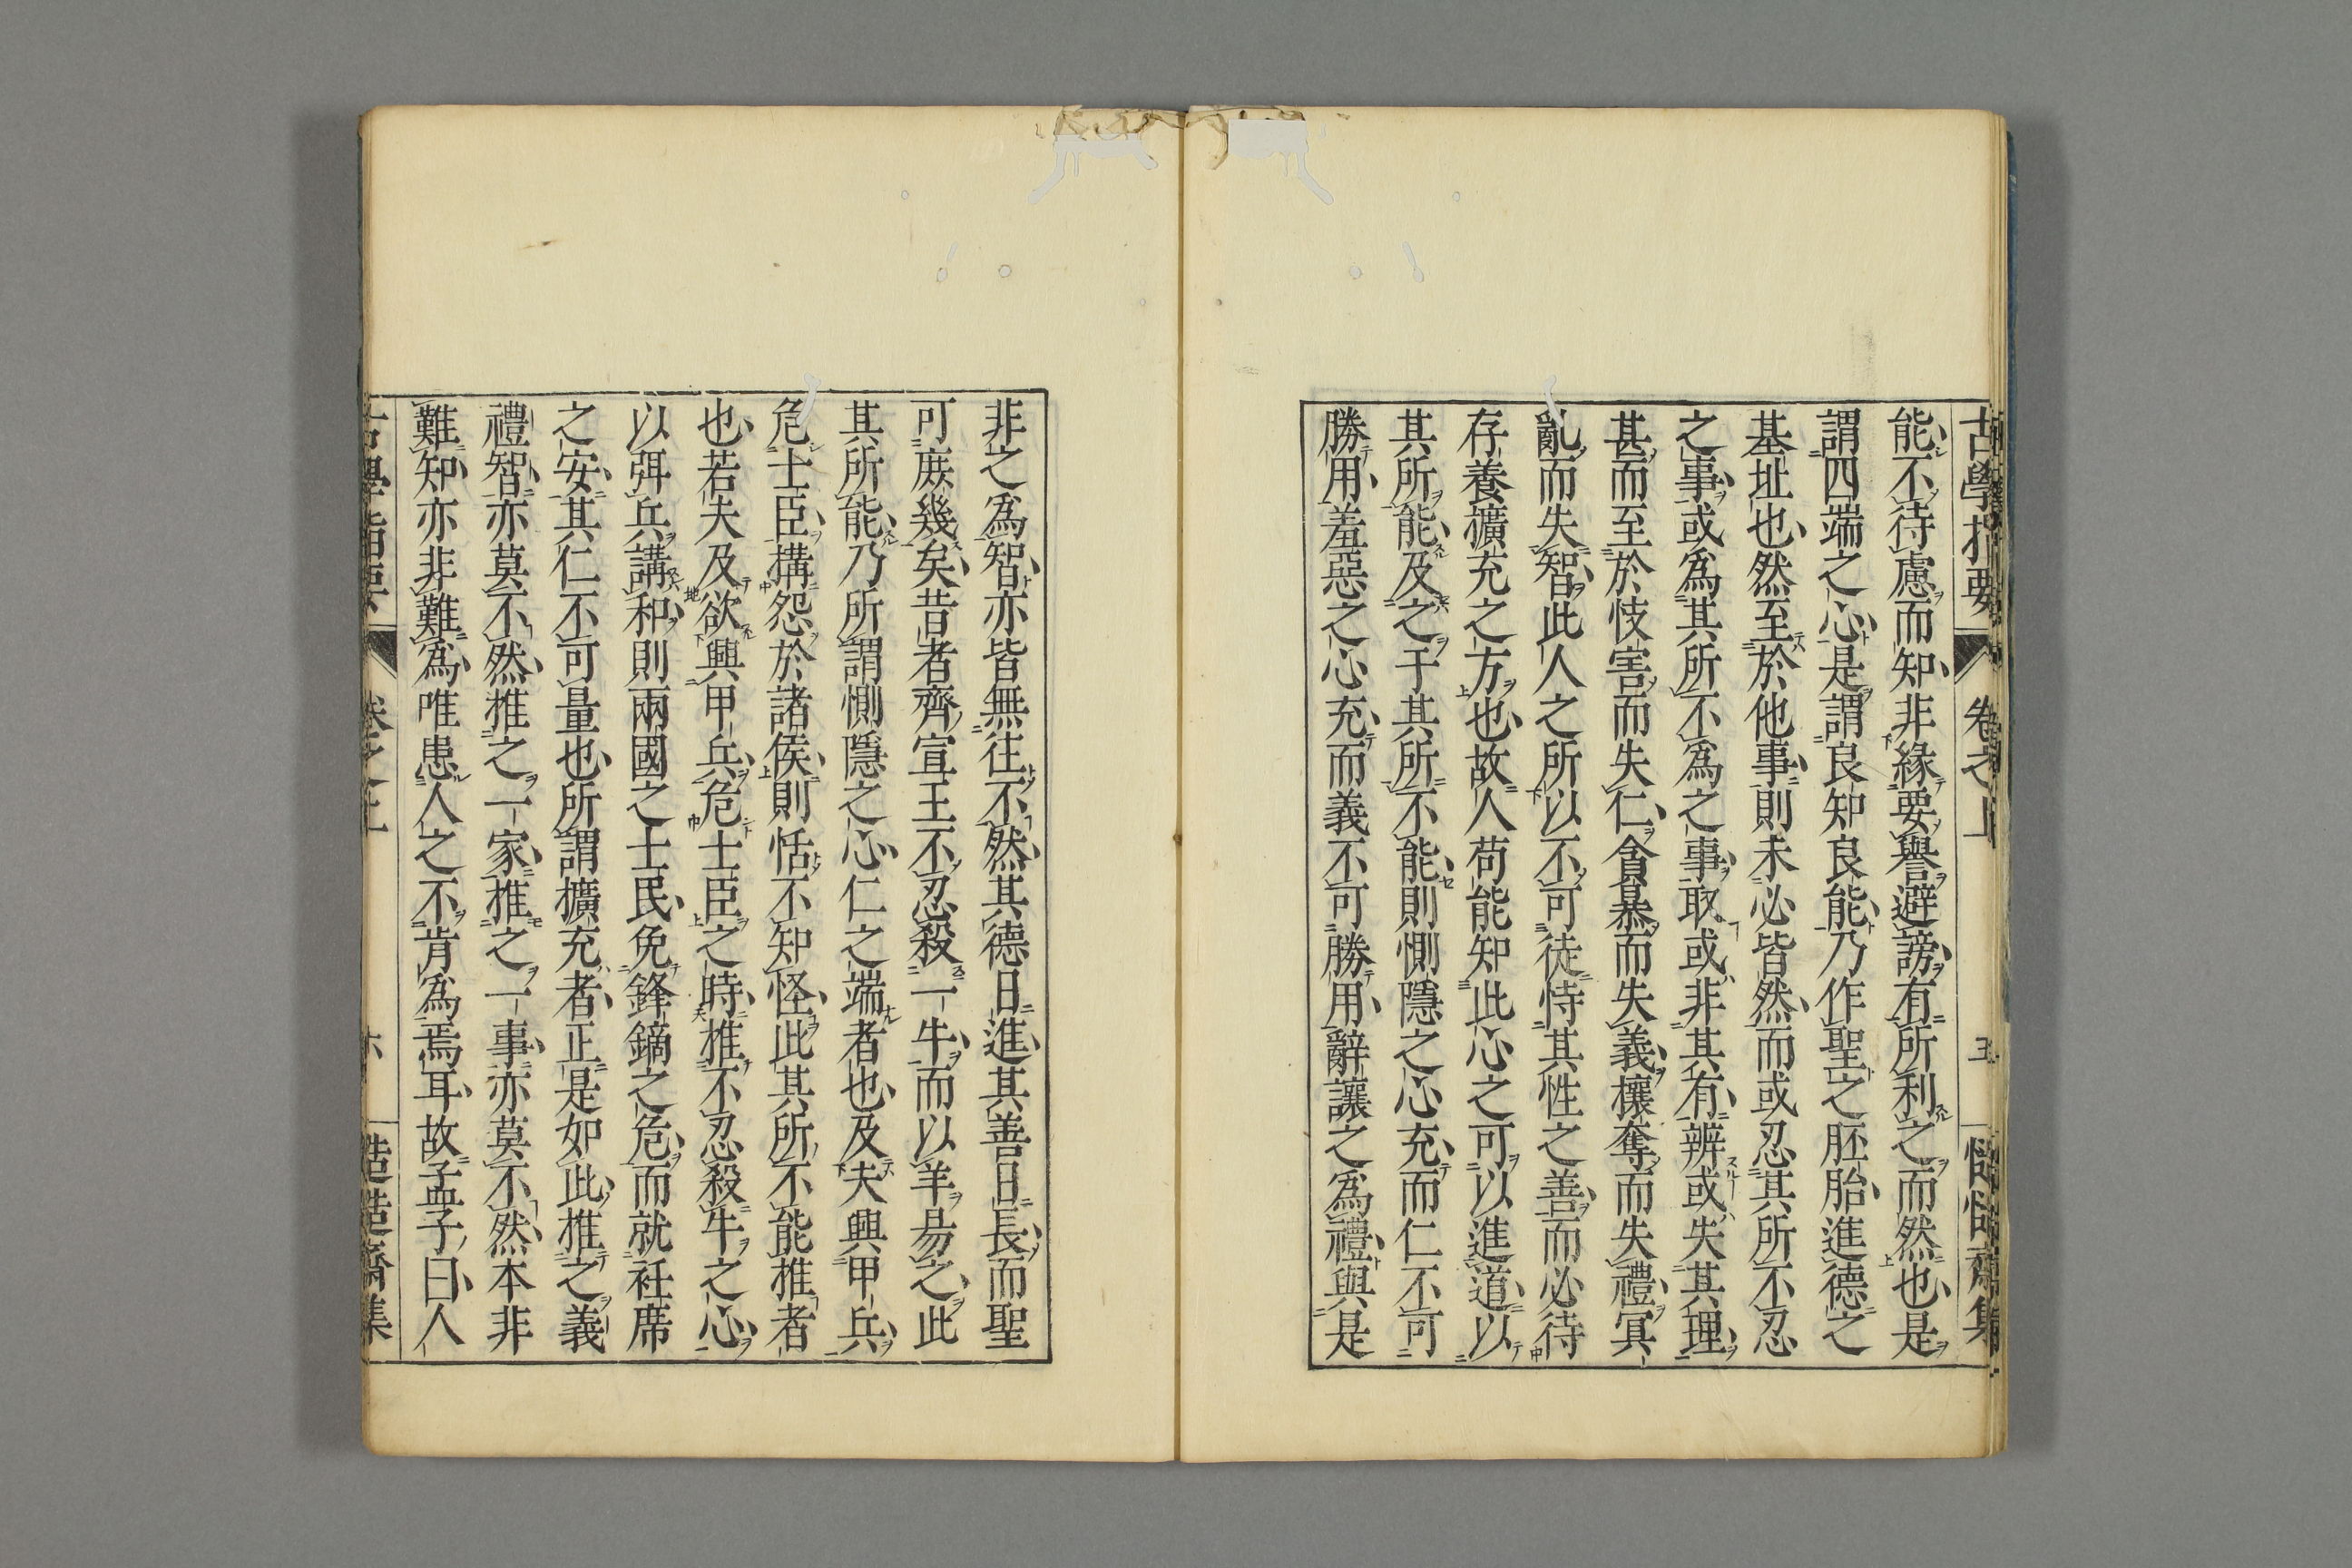 古學指要 卷之上 五 慥慥齋集
能不待慮而知非緣要譽避謗有所利之而然也是
謂四端之心是謂良知良能乃作聖之胚胎進德之
基址也然至於他事則未必皆然而或忍其所不忍
之事或爲其所不爲之事取或非其有辨或失其理
甚而至於忮害而失仁貪暴而失義攘奪而失禮冥
亂而失智此人之所以不可徒恃其性之善而必待
存養擴充之方也故人苟能知此心之可以進道以
其所能及之于其所不能則惻隱之心充而仁不可
勝用羞惡之心充而義不可勝用辭讓之爲禮與是
非之爲智亦皆無往不然其德日進其善日長而聖
可庶幾矣昔者齊宣王不忍殺一牛而以羊易之此
其所能乃所謂惻隱之心仁之端者也及夫興甲兵
危士臣搆怨於諸侯則恬不知怪此其所不能推者
也若夫及欲興甲兵危士臣之時推不忍殺牛之心
以弭兵講和則兩國之士民免鋒鏑之危而就衽席
之安其仁不可量也所謂擴充者正是如此推之義
禮智亦莫不然推之一家推之一事亦莫不然本非
難知亦非難爲唯患人之不肯爲焉耳故孟子曰人
古學指要 卷之上 六 慥慥齋集